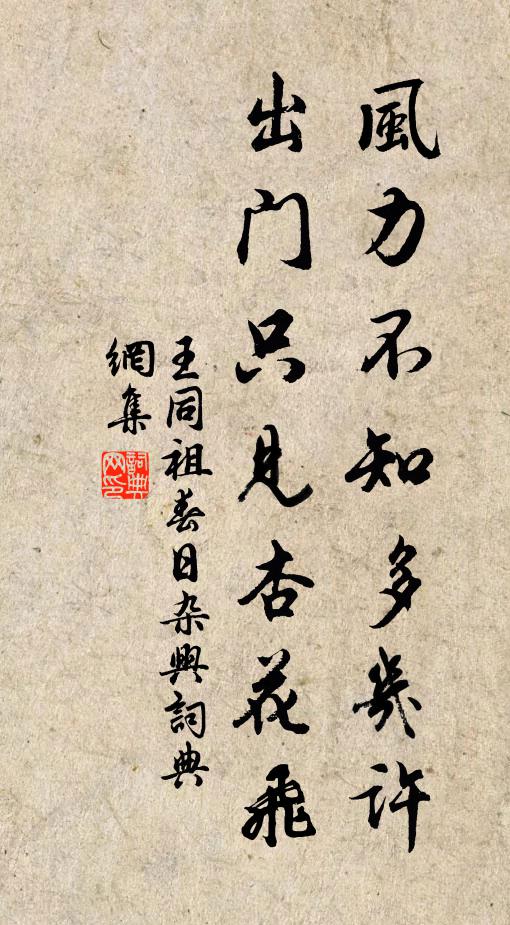 風力不知多幾許
出门只見杏花飛
王同祖春日杂興詞典
網集
詞典
网印